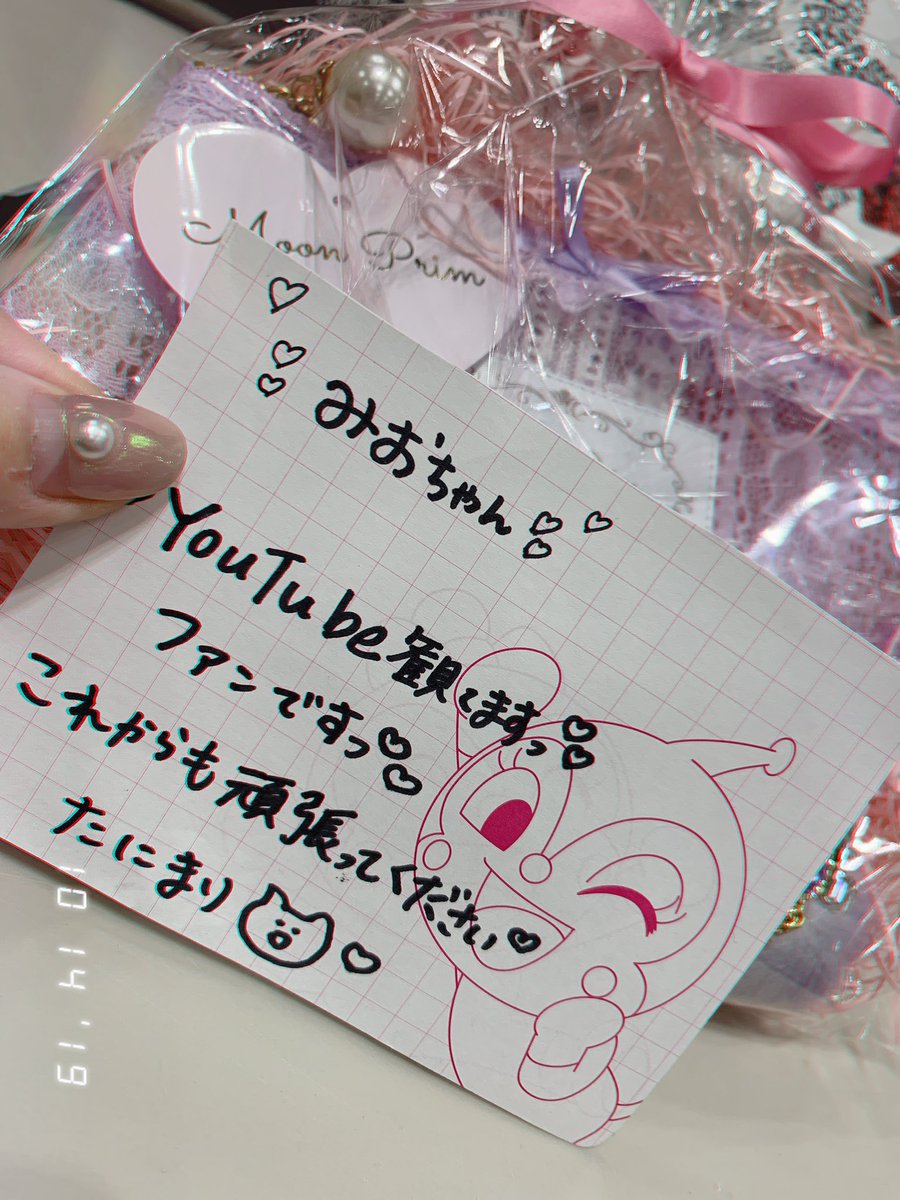 Moon Prim
みおちゃん
YouTube観てますっ
ファンですっ
これからも頑張ってください
たにまり
10 14 '19